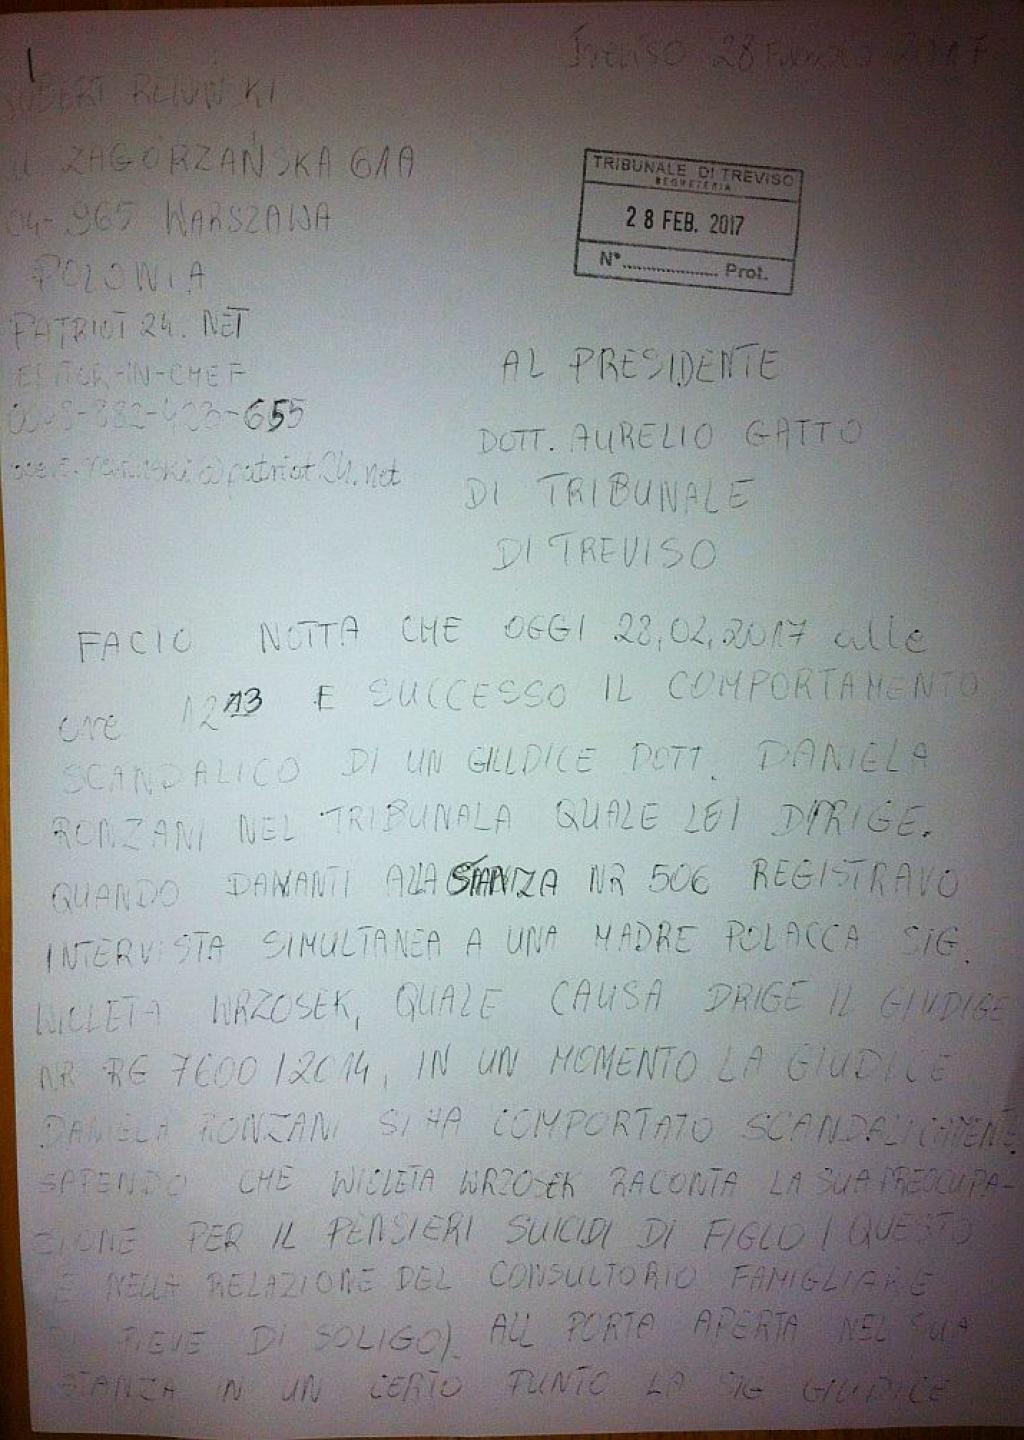 1
Treviso 28 2017
REWIŃSKI
ZAGÓRZAŃSKA 61A
04-965 WARSZAWA
POLONIA
PATRIOT 24. NET
EDITOR-IN-CHEF
655
@patriot24.net
TRIBUNALE DI TREVISO
SEGRETERIA
28 FEB. 2017
N°.................... Prot.
AL PRESIDENTE
DOTT. AURELIO GATTO
DI TRIBUNALE
DI TREVISO
FACIO NOTTA CHE OGGI 28,02,2017 alle
ore 12 13 E SUCCESSO IL COMPORTAMENTO
SCANDALICO DI UN GIUDICE DOTT. DANIELA
RONZANI NEL TRIBUNALA QUALE LEI DIRIGE.
QUANDO DAVANTI ALLA STANZA NR 506 REGISTRAVO
INTERVISTA SIMULTANEA A UNA MADRE POLACCA SIG.
WIOLETA WRZOSEK, QUALE CAUSA DRIGE IL GIUDIGE
NR RG 7600/2014, IN UN MOMENTO LA GIUDICE
DANIELA RONZANI SI HA COMPORTATO SCANDALICAMENTE
SAPENDO CHE WIOLETA WRZOSEK RACONTA LA SUA PREOCUPA-
ZIONE PER IL PENSIERI SUICIDI DI FIGLIO (QUESTO
E NELLA RELAZIONE DEL CONSULTORIO FAMIGLIARE
DI PIEVE DI SOLIGO). ALL PORTA APERTA NEL SUA
STANZA IN UN CERTO PUNTO LA SIG GIUDICE